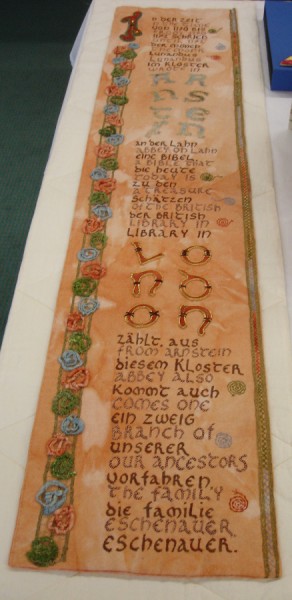 n der Zeit
der Mönch
Lunandus
Lunandus
im Kloster
wrote in
an der Lahn
Abbey on Lahn
eine Bibel
a Bible that
die heute
today is
zu den
a treasure
Schätzen
of the British
der British
Library in
Library in
LO
ND
ON
zählt. Aus
from Arnstein
diesem Kloster
Abbey also
kommt auch
comes one
ein Zweig
branch of
unserer
our ancestors
Vorfahren,
the family
die Familie
Eschenauer.
Eschenauer.